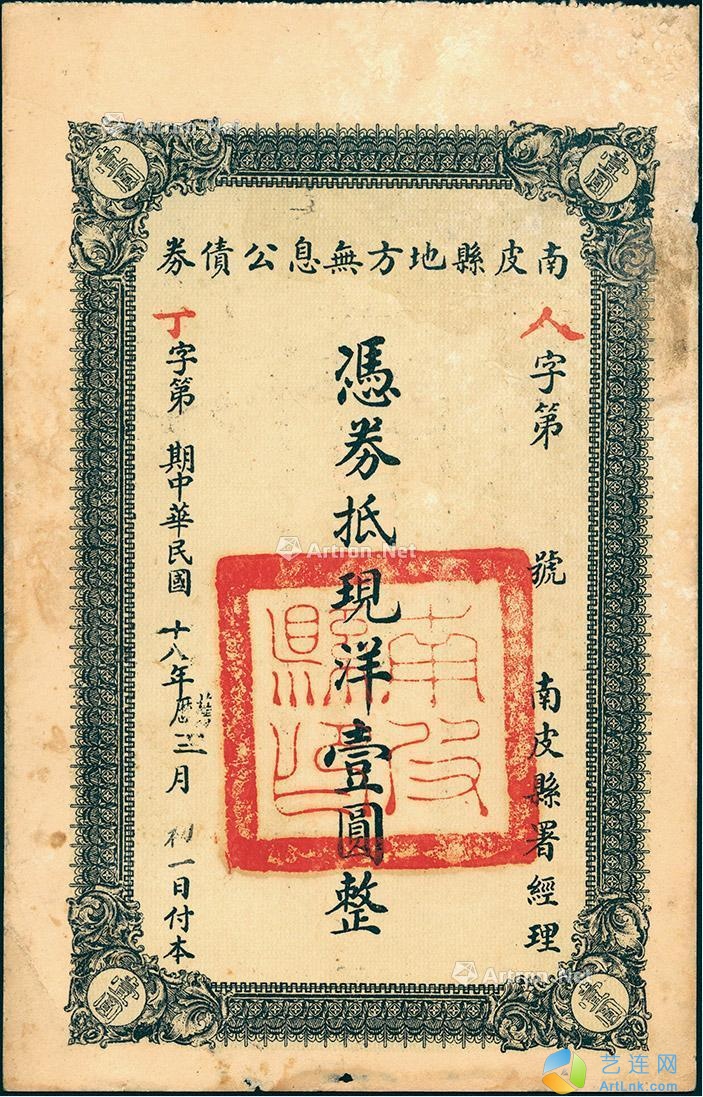 南皮縣地方無息公債券
人字第 號 南皮縣署經理
憑券抵現洋壹圓整
丁字第 期中華民國十八年舊曆三月初一日付本
南皮縣印
壹圓
壹圓
壹圓
壹圓
Artron.Net
Artron.Net
Artron.Net
艺连网
ArtLnk.com